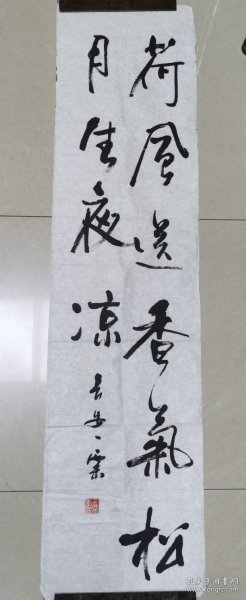 荷风送香氣松
月生夜凉